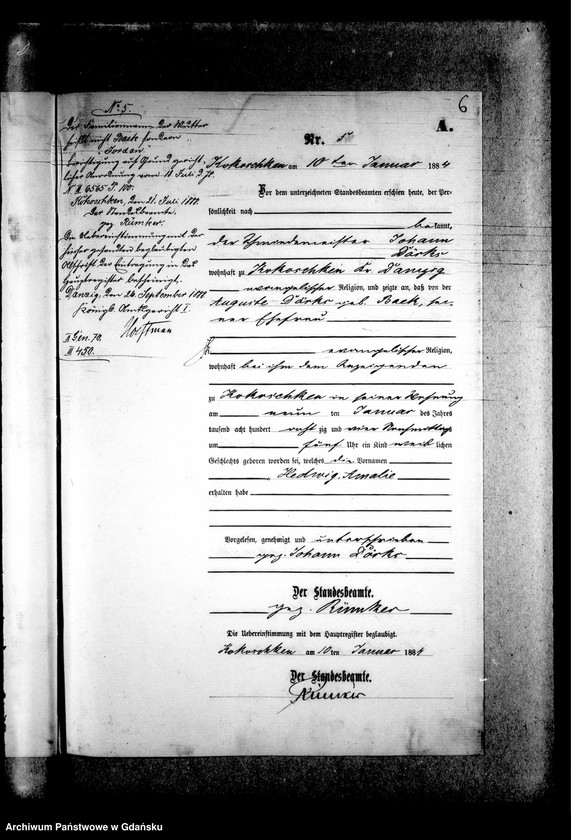 6
A.
No 5.
Der Familienname der Mutter
heißt nicht Baek sondern
"Jordan"
Eingetragen auf Grund gericht-
licher Anordnung vom 11 Juli d Js.
N III 6565 P. 100.
Kokoschken, den 21. Juli 1888.
Der Standesbeamte.
gez Rümker.
Die Uebereinstimmung mit der
hierher gesandten beglaubigten
Abschrift der Eintragung in das
Hauptregister bescheinigt.
Danzig, den 26. September 1888
Königl. Amtsgericht I.
Horstman
II Gen. 70.
III 450.
Nr. 5
Kokoschken am 10 ten Januar 1884
Vor dem unterzeichneten Standesbeamten erschien heute, der Per-
sönlichkeit nach
bekannt,
der Schmiedemeister Johann
Dörks
wohnhaft zu Kokoschken Kr. Danzig
evangelischer Religion, und zeigte an, daß von der
Auguste Dörks geb. Baek, sei-
ner Ehefrau
evangelischer Religion,
wohnhaft bei ihm dem Anzeigenden
zu Kokoschken in seiner Wohnung
am neun ten Januar des Jahres
tausend acht hundert acht zig und vier Nachmittags
um fünf Uhr ein Kind weib lichen
Geschlechts geboren worden sei, welches die Vornamen
Hedwig, Amalie
erhalten habe
Vorgelesen, genehmigt und unterschrieben
gez. Johann Dörks
Der Standesbeamte.
gez. Rümker
Die Uebereinstimmung mit dem Hauptregister beglaubigt.
Kokoschken am 10 ten Januar 1884
Der Standesbeamte.
Rümker
Archiwum Państwowe w Gdańsku